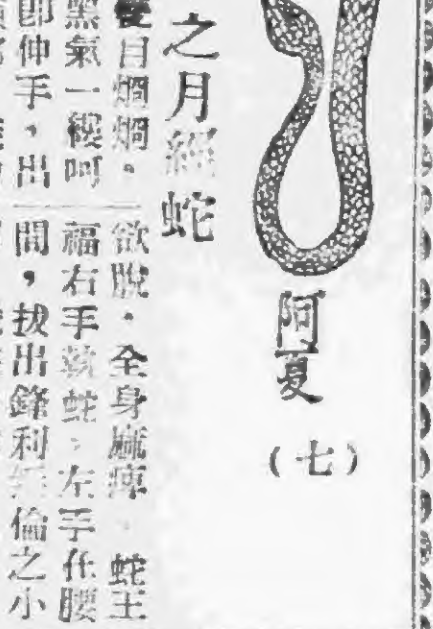 阿夏
（七）
之月經蛇
雙目烱烱。
黑氣一
阿
卽伸手，出
欲脫，全身麻痺，蛇王
福右手執蛇，左手在腰
間，拔出鋒利無倫之小